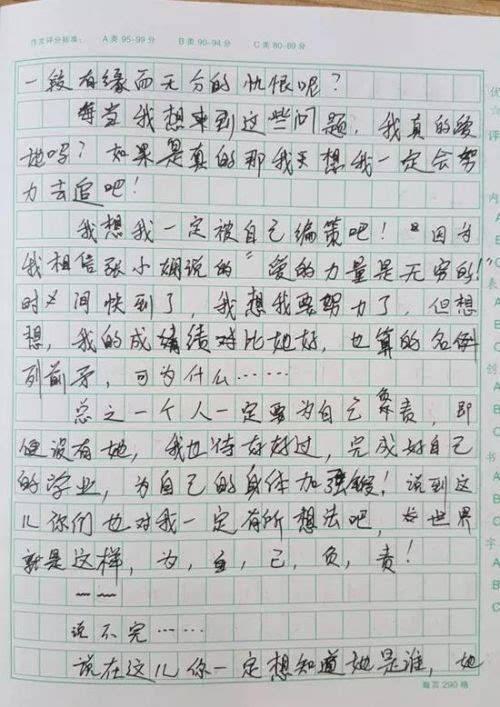 作文评分标准： A类95-99分 B类90-94分 C类80-89分
一段有缘而无分的仇恨呢？
每当我想来到这些问题，我真的爱
她吗？如果是真的那我天想我一定会努
力去追吧！
我想我一定被自己编策吧！“因为
我相信张小娴说的“爱的力量是无穷的！”
时间快到了，我想我要努力了，但想
想，我的成绩对比她好，也算的名例
列前矛，可为什么……
总之一个人一定要为自己负责，即
便没有她，我也待好好过，完成好自己
的学业，为自己的身体加强锻！说到这
儿你们也对我一定有所想法吧，世界
就是这样，为，自，己，负，责！
——
说不完……
说在这儿你一定想知道她是谁，她
每页290格